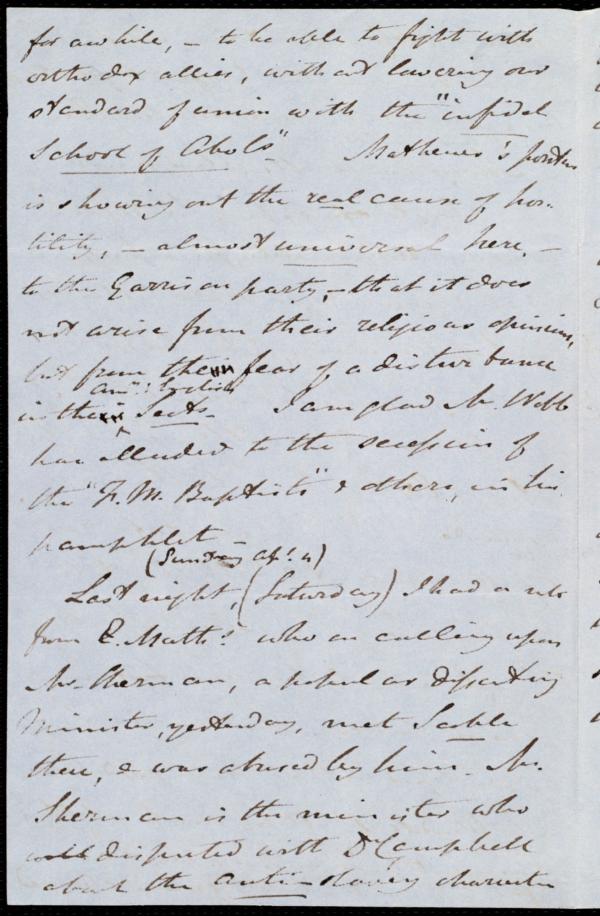 for awhile, – to be able to fight with
orthodox allies, without lowering our
standard of union with the "infidel
School of Abol's"    Mathews's position
is showing out the real cause of hos-
tility, – almost universal here, –
to the Garrison party, – that it does
not arise from their religious opinions,
but from the fear of a disturbance
in the Sects.    I am glad Mr. Webb
has alluded to the secession of
the "F. W. Baptists" & others, in his
pamphlet –
(Sunday Ap! 4)
Last night, (Saturday) I had a note
from E. Math.s who on calling upon
Mr. Sherman, a popular dissenting
Minister, yesterday, met Scoble
there, & was abused by him. Mr.
Sherman is the minister who
disputed with Dr Campbell
about the anti-slavery character